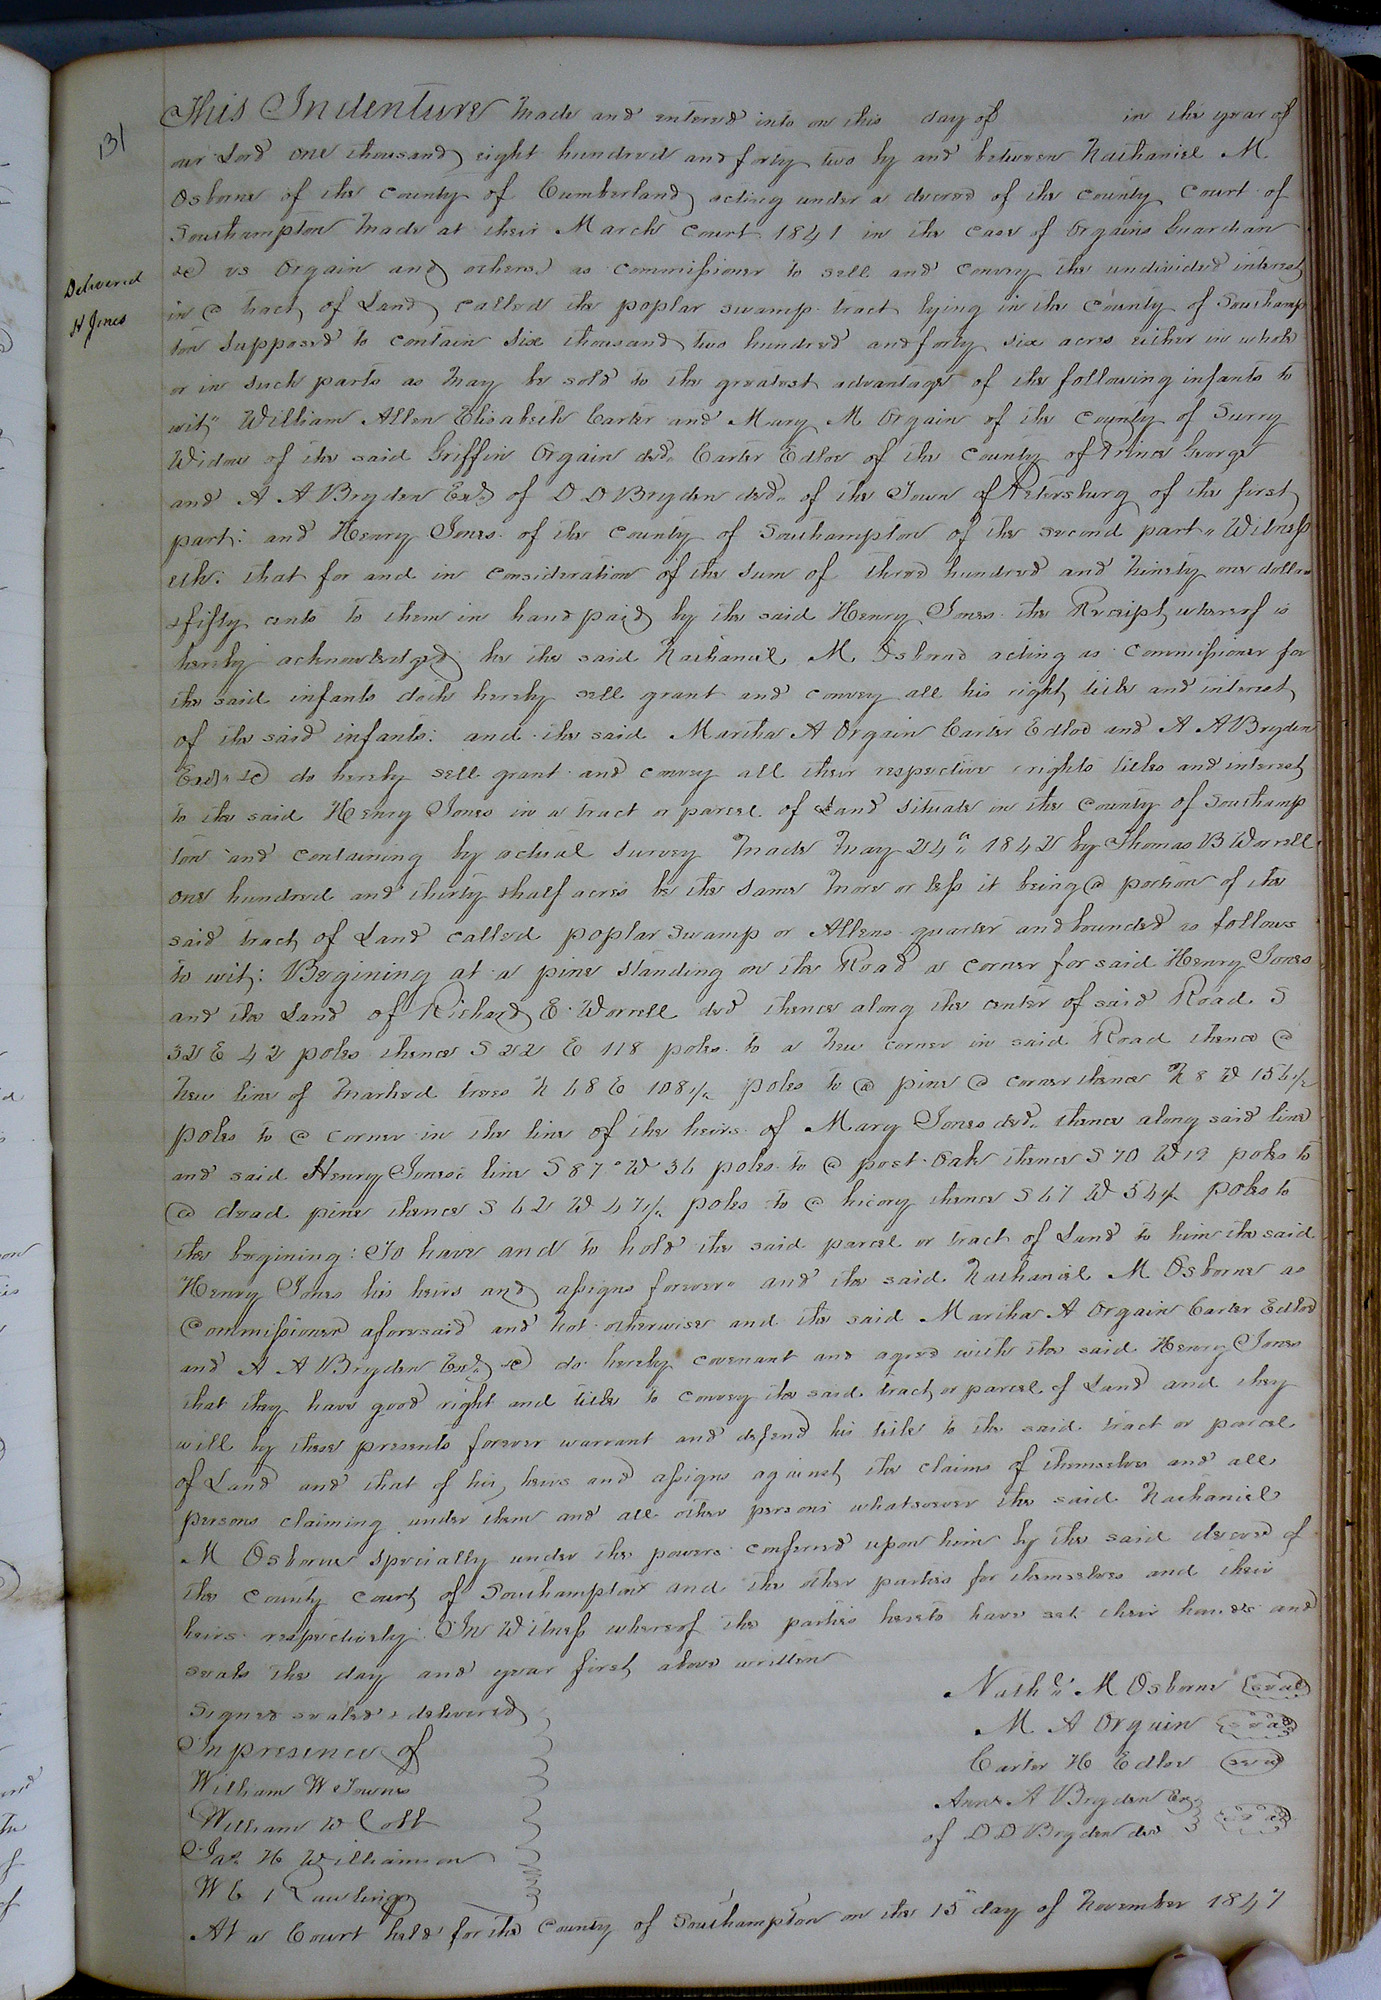 131
This Indenture made and entered into on this day of in the year of
our Lord one thousand eight hundred and forty two by and between Nathaniel M
Osborne of the county of Cumberland acting under a decree of the county court of
Southampton made at their March court 1841 in the case of Orgains Guardian
&c vs Orgain and others as commissioner to sell and convey the undivided interest
Delivered
H Jones
in a tract of Land called the poplar swamp tract lying in the County of Southamp
ton supposed to contain six thousand two hundred and forty six acres either in whole
or in such parts as may be sold to the greatest advantage of the following infants to
wit" William Allen Elisabeth Carter and Mary M Orgain of the county of Surry
Widow of the said Griffin Orgain decd. Carter Edloe of the county of Prince George
and A A Bryden Exr. of D D Bryden decd. of the Town of Petersburg of the first
part: and Henry Jones of the county of Southampton of the second part" Witness
eth: that for and in consideration of the sum of three hundred and ninety one dollars
&fifty cents to them in hand paid by the said Henry Jones the Receipt whereof is
hereby acknowledged he the said Nathaniel M Osborne acting as Commissioner for
the said infants doth hereby sell grant and convey all his right title and interest
of the said infants: and the said Martha A Orgain Carter Edloe and A A Bryden
Exr. &c do hereby sell grant and convey all their respective rights titles and interest
to the said Henry Jones in a tract or parcel of Land situate in the county of Southamp
ton and containing by actual survey made May 24" 1842 by Thomas B Worrell
one hundred and thirty &half acres be the same more or less it being a portion of the
said tract of Land called poplar swamp or Allens quarter and bounded as follows
to wit: Begining at a pine standing on the Road a corner for said Henry Jones
and the Land of Richard E Worrell decd thence along the center of said Road S
32 E 42 poles thence S 22 E 118 poles to a new corner in said Road thence a
new line of marked trees N 68 E 108½ poles to a pine a corner thence N 8 W 156½
poles to a corner in the line of the heirs of Mary Jones decd. thence along said line
and said Henry Jones's line S 87° W 36 poles to a post Oak thence S 70 W 19 poles to
a dead pine thence S 62 W 47½ poles to a hicory thence S 67 W 54½ poles to
the begining: To have and to hold the said parcel or tract of Land to him the said
Henry Jones his heirs and assigns forever" and the said Nathaniel M Osborne as
Commissioner aforesaid and not otherwise and the said Martha A Orgain Carter Edloe
and A A Bryden Exr. &c do hereby covenant and agree with the said Henry Jones
that they have good right and title to convey the said tract or parcel of Land and they
will by these presents forever warrant and defend his title to the said tract or parcel
of Land and that of his heirs and assigns against the claims of themselves and all
persons claiming under them and all other persons whatsoever the said Nathaniel
M Osborne specially under the powers confered upon him by the said decree of
the county court of Southampton and the other parties for themselves and their
heirs respectively In Witness whereof the parties hereto have set their hands and
seals the day and year first above written
Signed sealed & delivered
In presence of
William W Townes
William W Cobb
Jas. H Williamson
W C J Rawlings
Nathl. M Osborne seal
M A Orgain seal
Carter H Edloe seal
Ann A Bryden Ex
of D D Bryden decd seal
At a Court held for the County of Southampton on the 15" day of November 1847